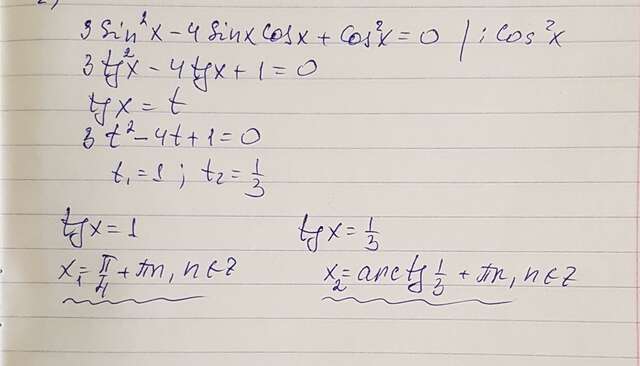 2)
3 Sin²x - 4 Sinx Cosx + Cos²x = 0 / : Cos²x
3 tg²x - 4 tgx + 1 = 0
tgx = t
3 t² - 4t + 1 = 0
t₁ = 1 ; t₂ = 1/3
tgx = 1
tgx = 1/3
x₁ = π/4 + πn, n ∈ Z
x₂ = arctg 1/3 + πn, n ∈ Z